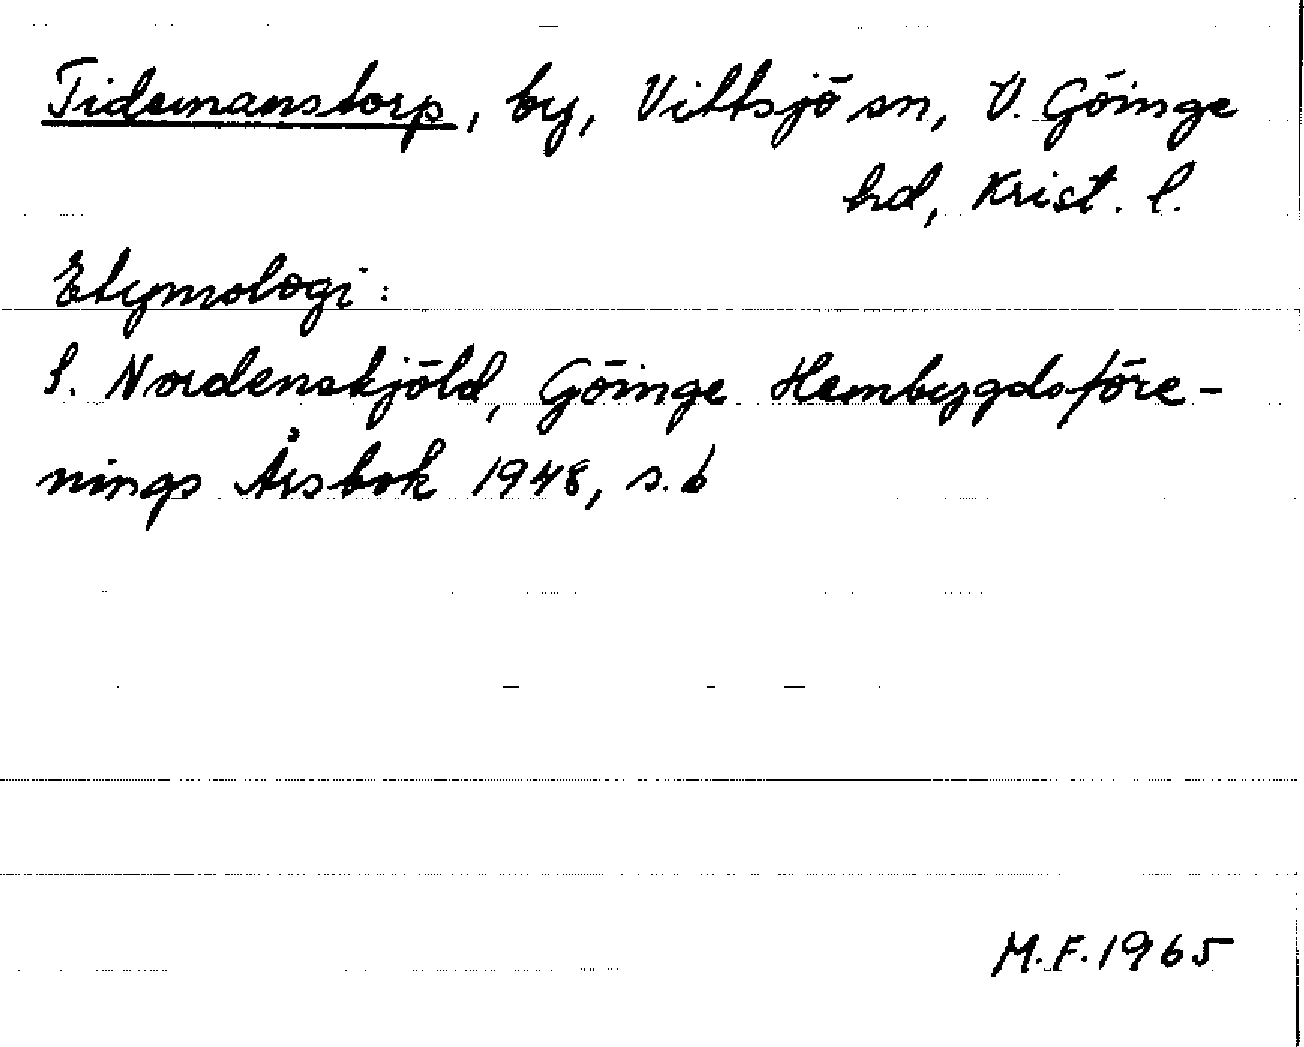 Tidemanstorp, by, Vittsjö sn, V. Göinge
hd, Krist. l.
Etymologi:
S. Nordenskjöld, Göinge Hembygdsföre-
nings Årsbok 1948, s. 6
M.F. 1965